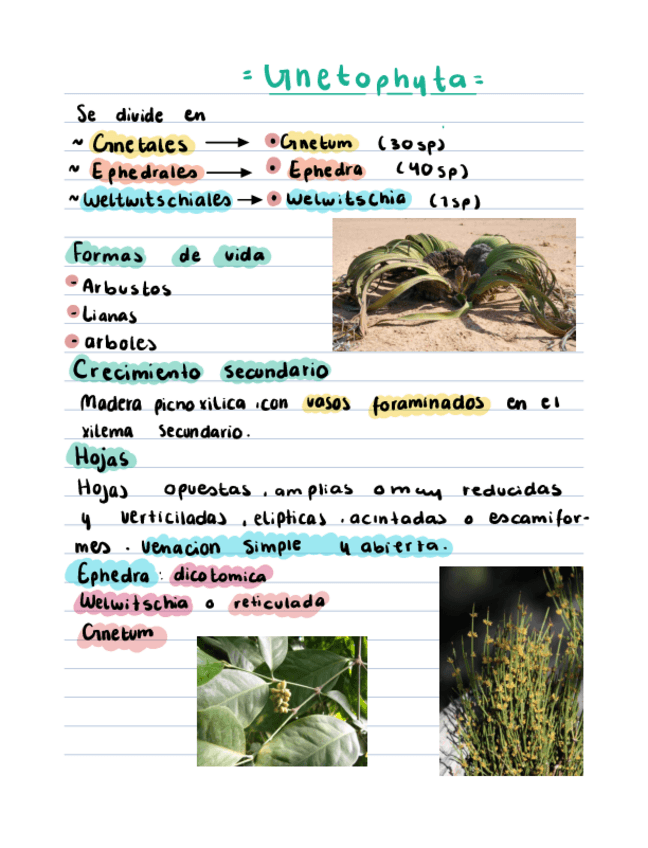 = Gnetophyta =
Se divide en
~ Gnetales → • Gnetum (30sp)
~ Ephedrales → • Ephedra (40sp)
~ Weltwitschiales → • Welwitschia (1sp)
Formas de vida
- Arbustos
- Lianas
- arboles
Crecimiento secundario
Madera picnoxilica, con vasos foraminados en el
xilema secundario.
Hojas
Hojas opuestas, amplias o muy reducidas
y verticiladas, elipticas, acintadas o escamifor-
mes. venacion simple y abierta.
Ephedra: dicotomica
Welwitschia o reticulada
Gnetum